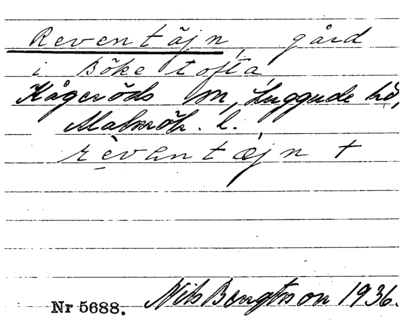 Reventäjn, gård
i Böketofta,
Kågeröds sn, Luggude hd,
Malmöh. l.
rèventæjn +
Nr 5688. Nils Bengtsson 1936.